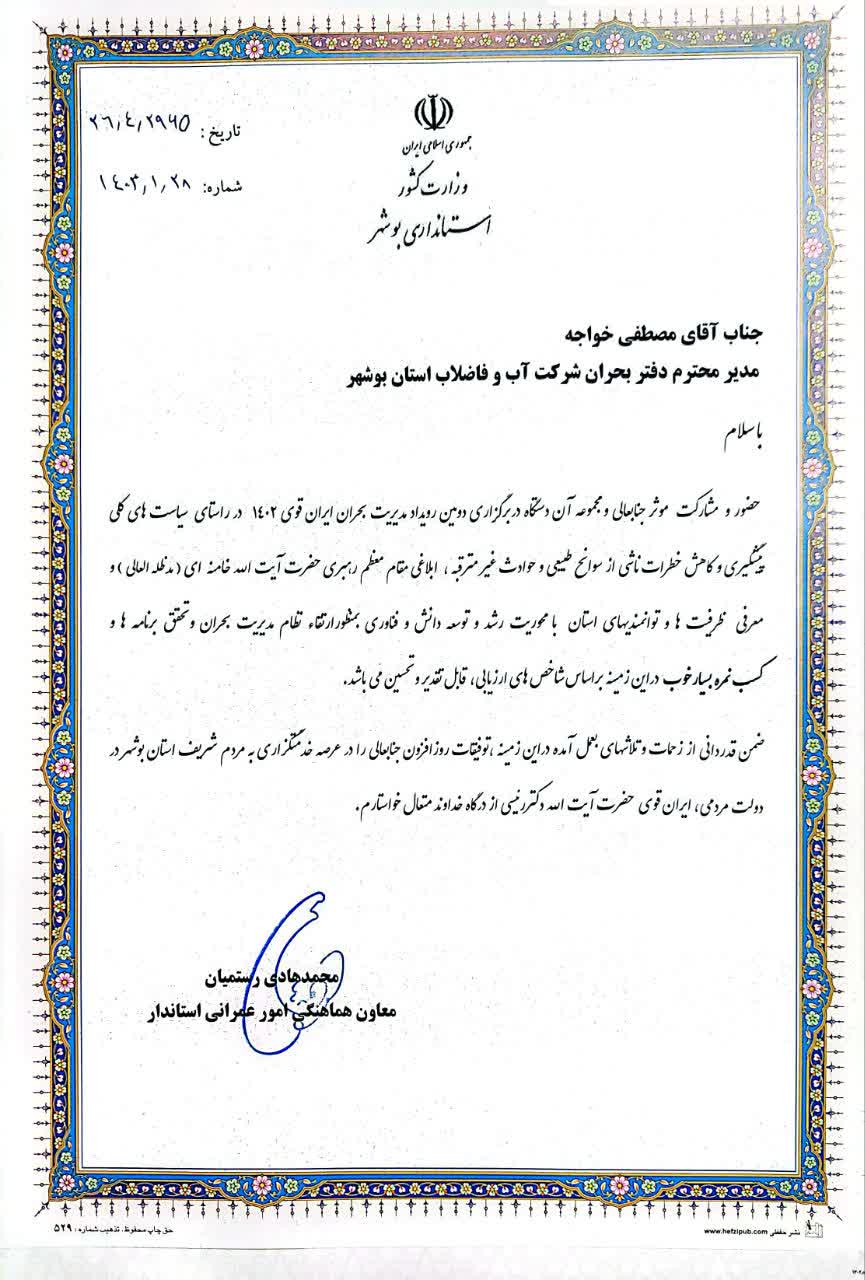 جمهوری اسلامی ایران
وزارت کشور
استانداری بوشهر
تاریخ: ۲۶/۴/۲۹۶۵
شماره: ۱۴۰۳/۱/۲۸
جناب آقای مصطفی خواجه
مدیر محترم دفتر بحران شرکت آب و فاضلاب استان بوشهر
با سلام
حضور و مشارکت موثر جنابعالی و مجموعه آن دستگاه در برگزاری دومین رویداد مدیریت بحران ایران قوی ۱۴۰۲ در راستای سیاست های کلی
پیشگیری و کاهش خطرات ناشی از سوانح طبیعی و حوادث غیر مترقبه ، ابلاغی مقام معظم رهبری حضرت آیت الله خامنه ای (مدظله العالی) و
معرفی ظرفیت ها و توانمندیهای استان با محوریت رشد و توسعه دانش و فناوری بمنظور ارتقاء نظام مدیریت بحران و تحقق برنامه ها و
کسب نمره بسیار خوب در این زمینه براساس شاخص های ارزیابی، قابل تقدیر و تحسین می باشد.
ضمن قدردانی از زحمات و تلاشهای بعمل آمده در این زمینه ،توفیقات روزافزون جنابعالی را در عرصه خدمتگزاری به مردم شریف استان بوشهر در
دولت مردمی، ایران قوی حضرت آیت الله دکتر رئیسی از درگاه خداوند متعال خواستارم.
محمدهادی رستمیان
معاون هماهنگی امور عمرانی استاندار
نشر حفظی www.hefzipub.com
حق چاپ محفوظ، تذهیب شماره: ۵۲۹